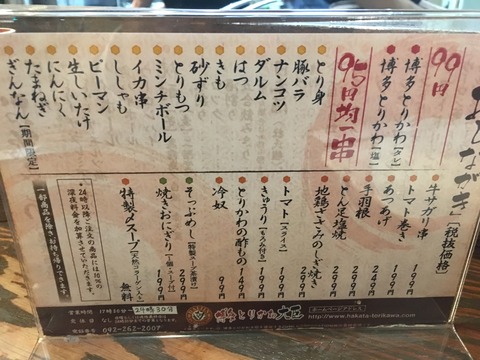 おしながき「税抜価格」
99円
博多とりかわ【タレ】
博多とりかわ【塩】
95円均一串
とり身
豚バラ
ナンコツ
ダルム
はつ
きも
砂ずり
とりもつ
ミンチボール
イカ串
ししゃも
ピーマン
生しいたけ
にんにく
たまねぎ
ぎんなん【期間限定】
牛サガリ串
トマト巻き 199
あつあげ
手羽根
とん足塩焼
地鶏ささみのしぎ焼き
トマト【スライス】
きゅうり【もろみ付き】
とりかわの酢もの 149
冷奴
そっぷめし【特製スープ茶漬け】 299
焼きおにぎり
特製〆スープ【天然コラーゲン入り】 無料
*24時以降ご注文の商品には10%の
深夜料金を加算させていただきます。
一部商品を除きお持ち帰りできます。
営業時間 17時30分〜24時30分
定休日 なし
電話番号 092-262-2007
博多とりかわ大臣
ホームページアドレス
http://www.hakata-torikawa.com